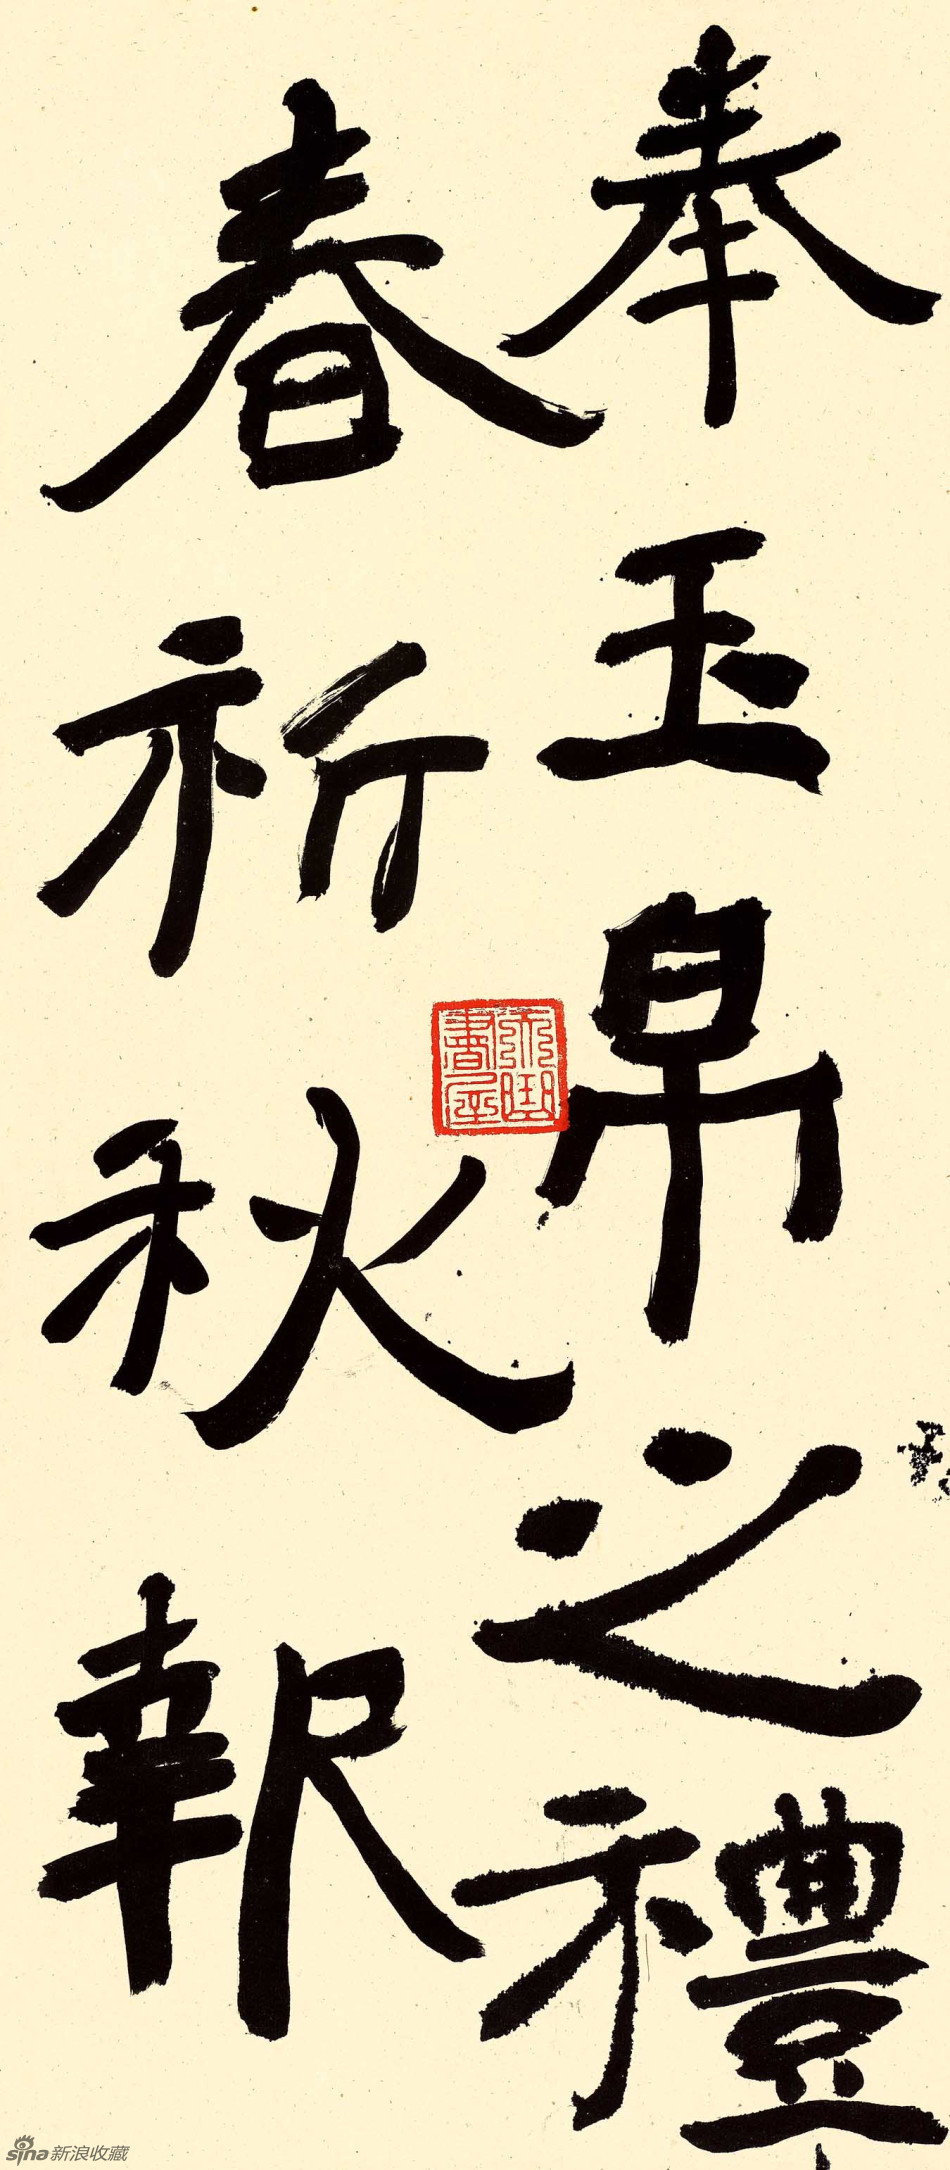 奉玉帛之禮
春祈秋報
sina新浪收藏